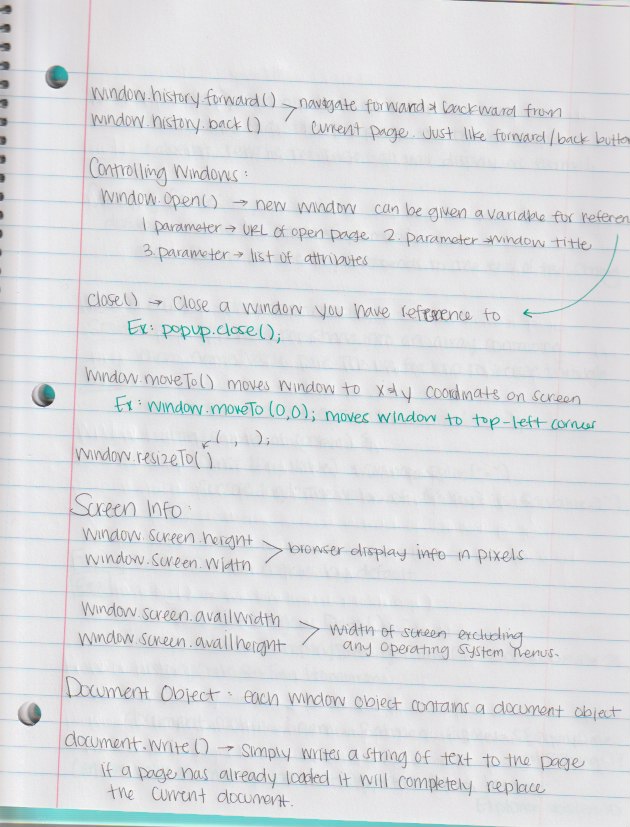 window.history.forward() > navigate forward & backward from
window.history.back() current page. Just like forward/back button
Controlling Windows:
window.open() → new window can be given a variable for referen
1. parameter → URL of open page 2. parameter → window title
3. parameter → list of attributes
close() → close a window you have reference to ←
Ex: popup.close();
window.moveTo() moves window to x & y coordinats on screen
Ex: window.moveTo(0,0); moves window to top-left corner
( , );
window.resizeTo()
Screen Info:
window.screen.height > browser display info in pixels
window.screen.width
window.screen.availWidth > width of screen excluding
window.screen.availheight any operating system menus.
Document Object: each window object contains a document object
document.write() → simply writes a string of text to the page
if a page has already loaded it will completely replace
the current document.